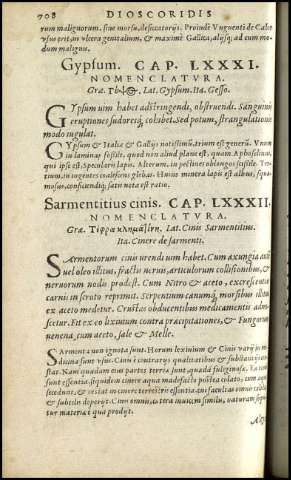 708 DIOSCORIDIS
rum malignorum, siue morsu, defœcatarij. Proinde Vnguenti de Calce
vsus erit, in vlcera genitalium, & maximè Gallica, alijsq; ad eum mo-
dum malignis.
Gypsum. CAP. LXXXI.
NOMENCLATVRA.
Græ. Γύψος, Lat. Gypsum. Ita. Gesso.
GYpsum uim habet adstringendi, obstruendi. Sanguinis
eruptiones, sudoresq́; cohibet. Sed potum, strangulationis
modo iugulat.
GYpsum & Italis & Gallijs notissimũ, trium est generũ. Vnum
in laminas fossile, quod non aliud planè est, quàm Aphroselinum,
qui ipse est, Specularis lapis. Alterum, in pectines oblongos fossile. Ter-
tium, in ingentes coalescens glebas. Huius minera lapis est albus, squa-
mosus, conficiendiq; satis nota est ratio.
Sarmentitius cinis. CAP. LXXXII.
NOMENCLATVRA.
Græ. Τέφρα κληματίνη, Lat. Cinis Sarmentitius.
Ita. Cinere de sarmenti.
SArmentorum cinis urendi uim habet. Cum axungia aut
uel oleo illitus, fractis neruis, articulorum collisionibus, &
neruorum nodis prodest. Cum Nitro & aceto, excrescentias
carnis in scroto reprimit. Serpentium canumq́; morsibus illitus
ex aceto medetur. Crustas obducentibus medicamentis admi-
scetur. Fit ex eo lixiuium contra præcipitationes, & Fungorum
uenena, cum aceto, sale & Melle.
SArmenta uen ignota sunt. Horum lixiuium & Cinis varijs in me-
dicina sunt vsus. Cinis è contrarijs qualitatibus & substantijs con-
stat. Nam quædam eius partes terreæ sunt, quædã fuliginosæ.
sunt essentia, siquidem cinere aqua madefacto postea colato, cum aqua
secedunt, & restat in cinere terrestris essentia
& subtilis deperijt. Cum omnis, utera inuicem similis, naturam sequa-
tur materiæ qua prodijt.